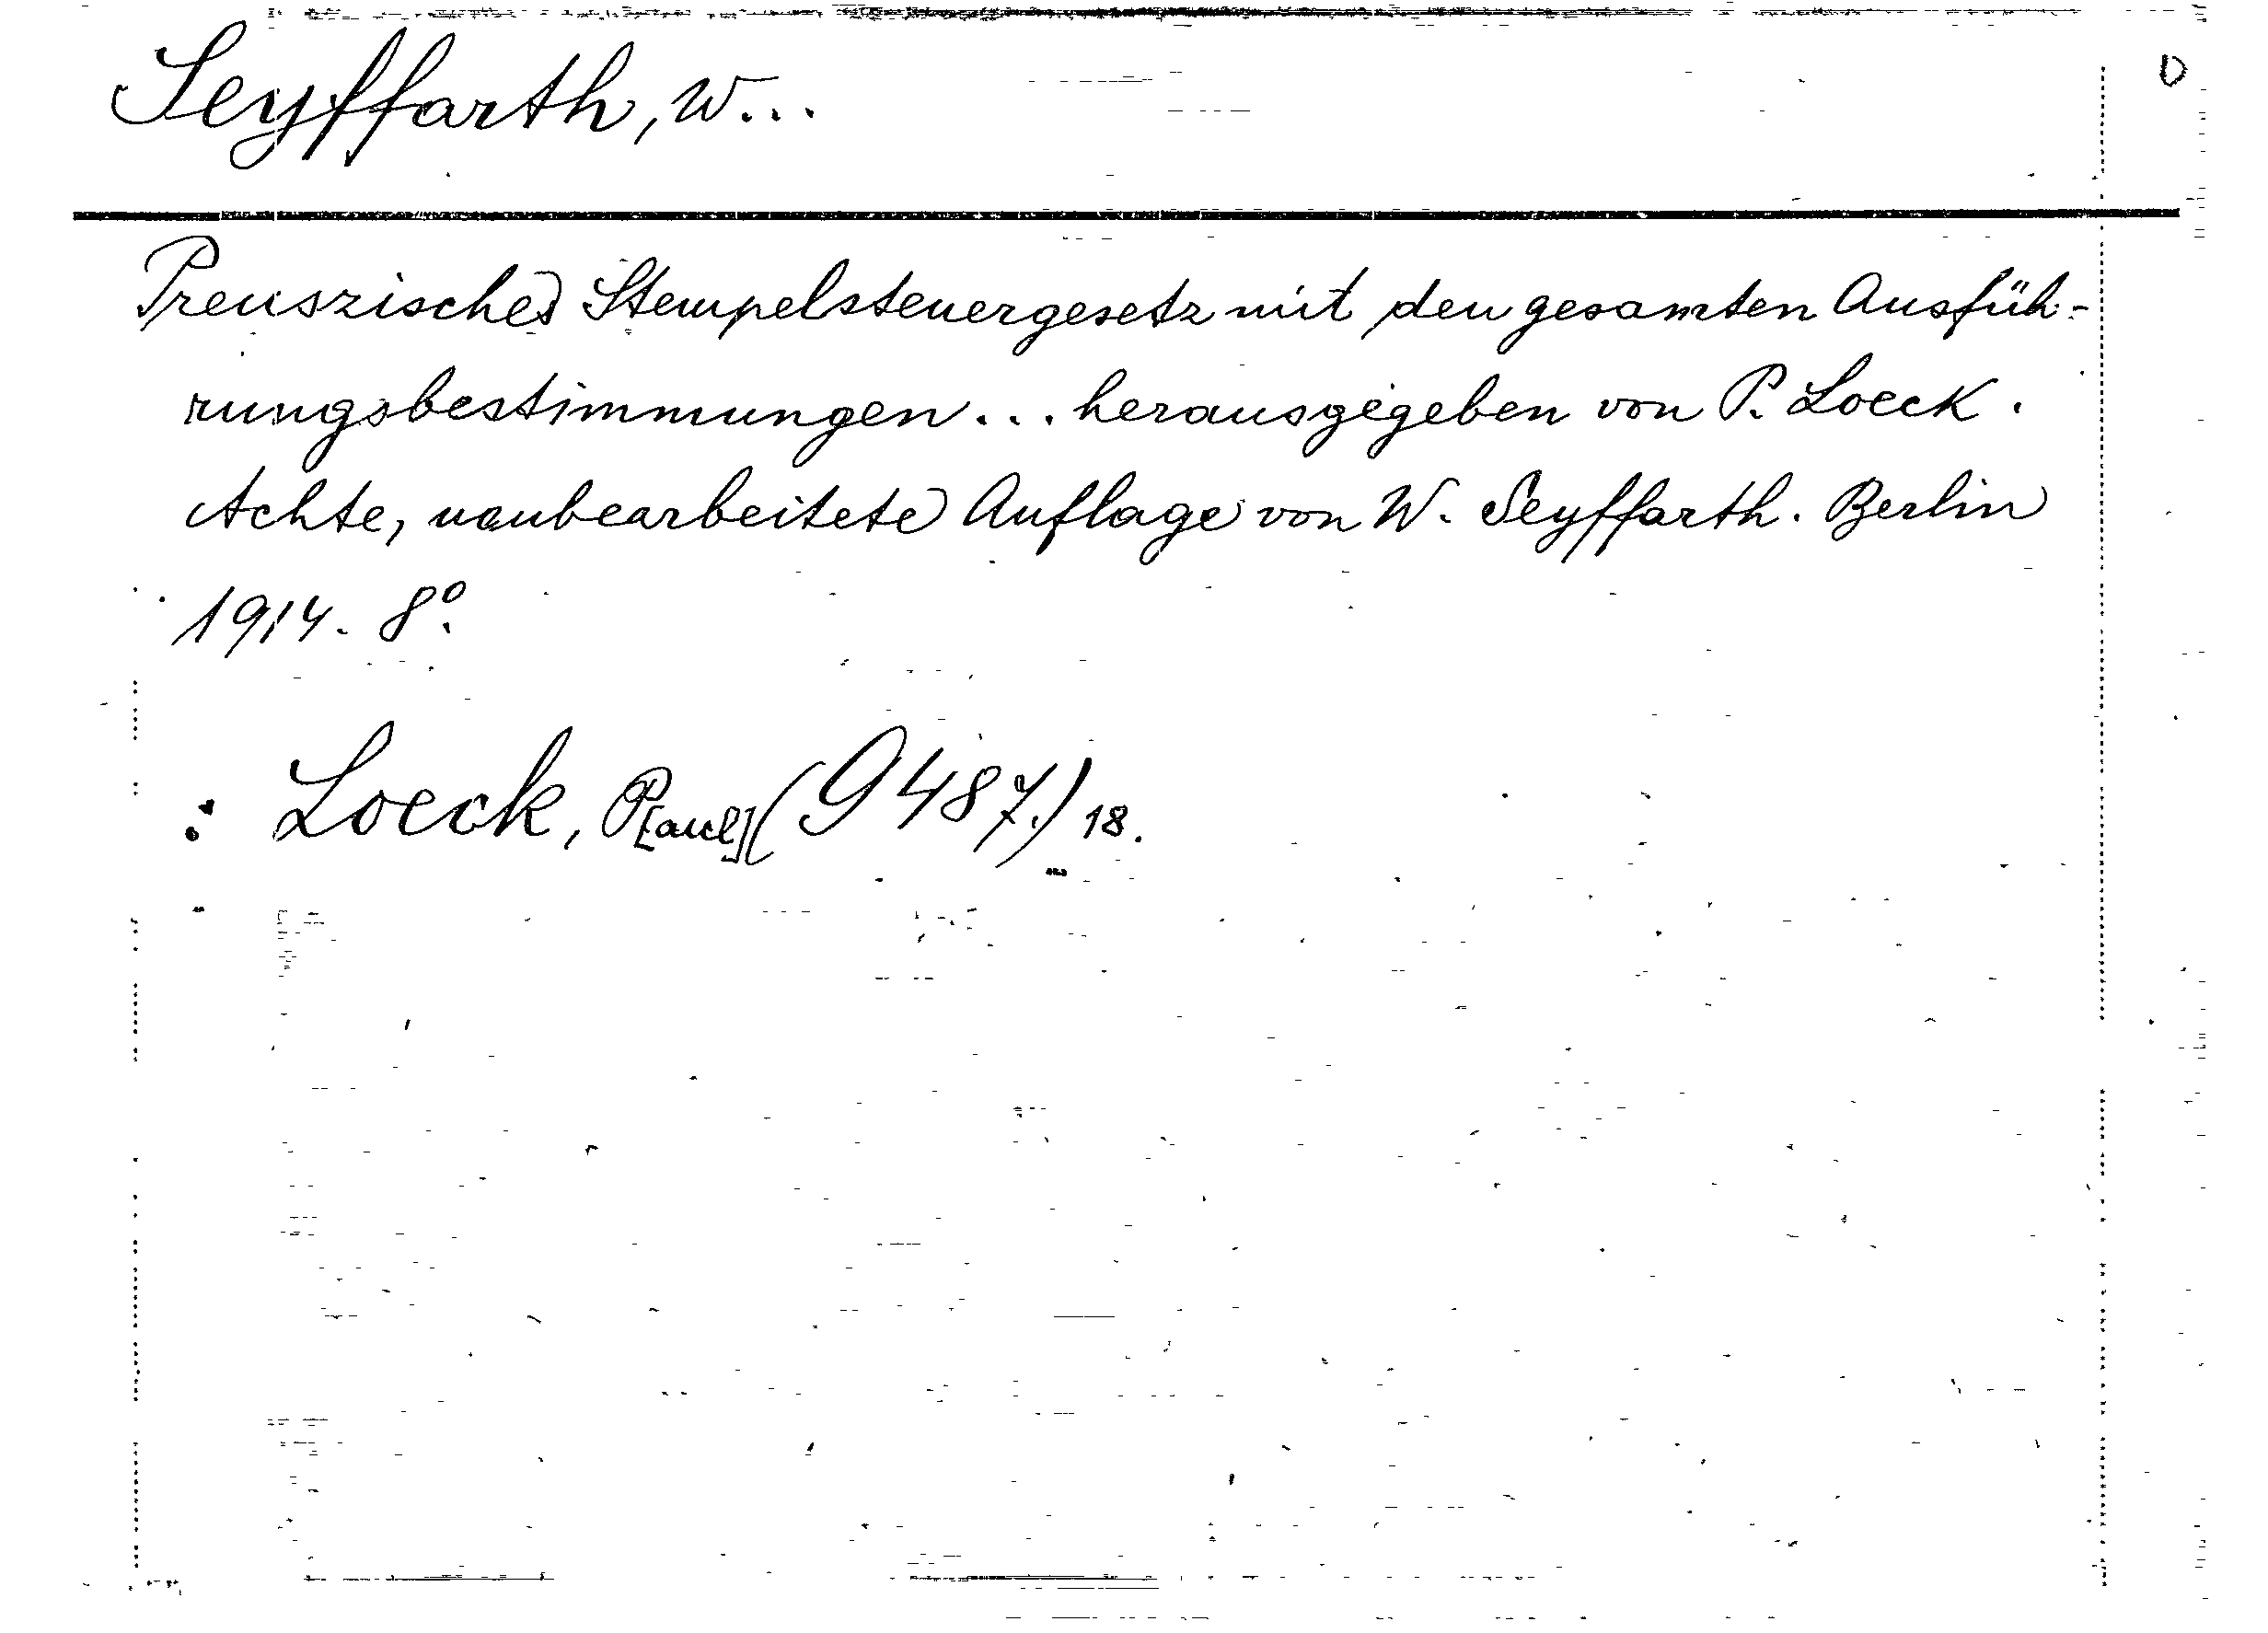 Seyffarth, W...
D
Preuszisches Stempelsteuergesetz mit den gesamten Ausfüh-
rungsbestimmungen... herausgegeben von P. Loeck.
Achte, neubearbeitete Auflage von W. Seyffarth. Berlin
1914. 8º.
: Loeck, P[aul] (9487.) 18.